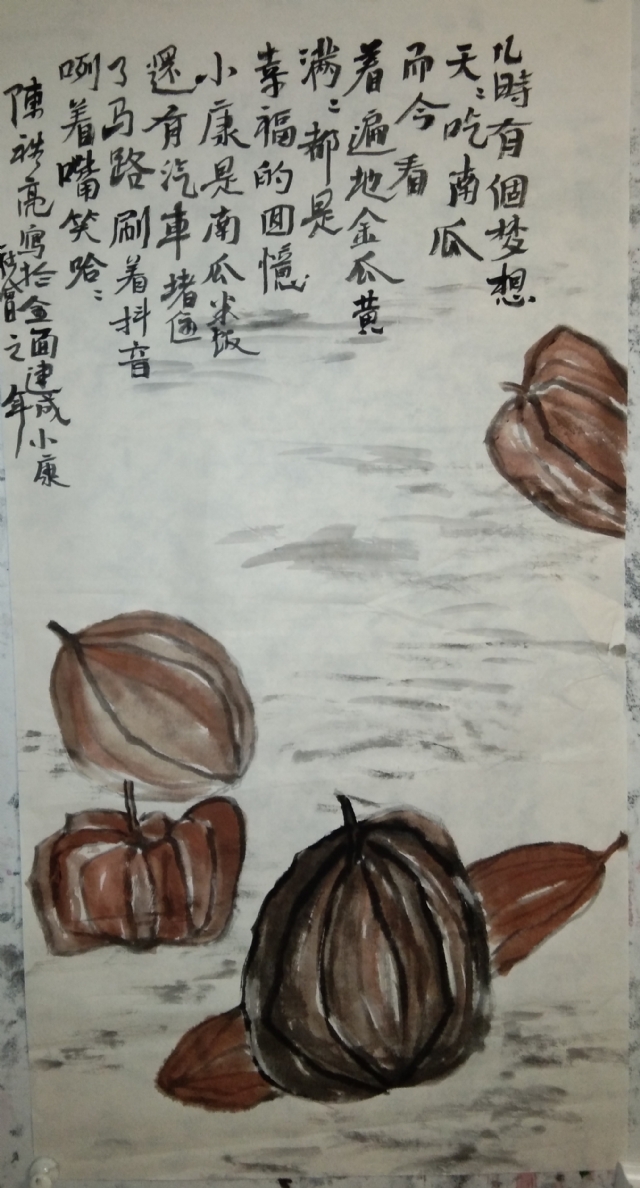 儿時有個梦想
天天吃南瓜
而今看
着遍地金瓜黄
满满都是
幸福的回憶
小康是南瓜米饭
還有汽車堵伍
了马路刷着抖音
咧着嘴笑哈哈
陳祥亮寫於全面建成小康
之年